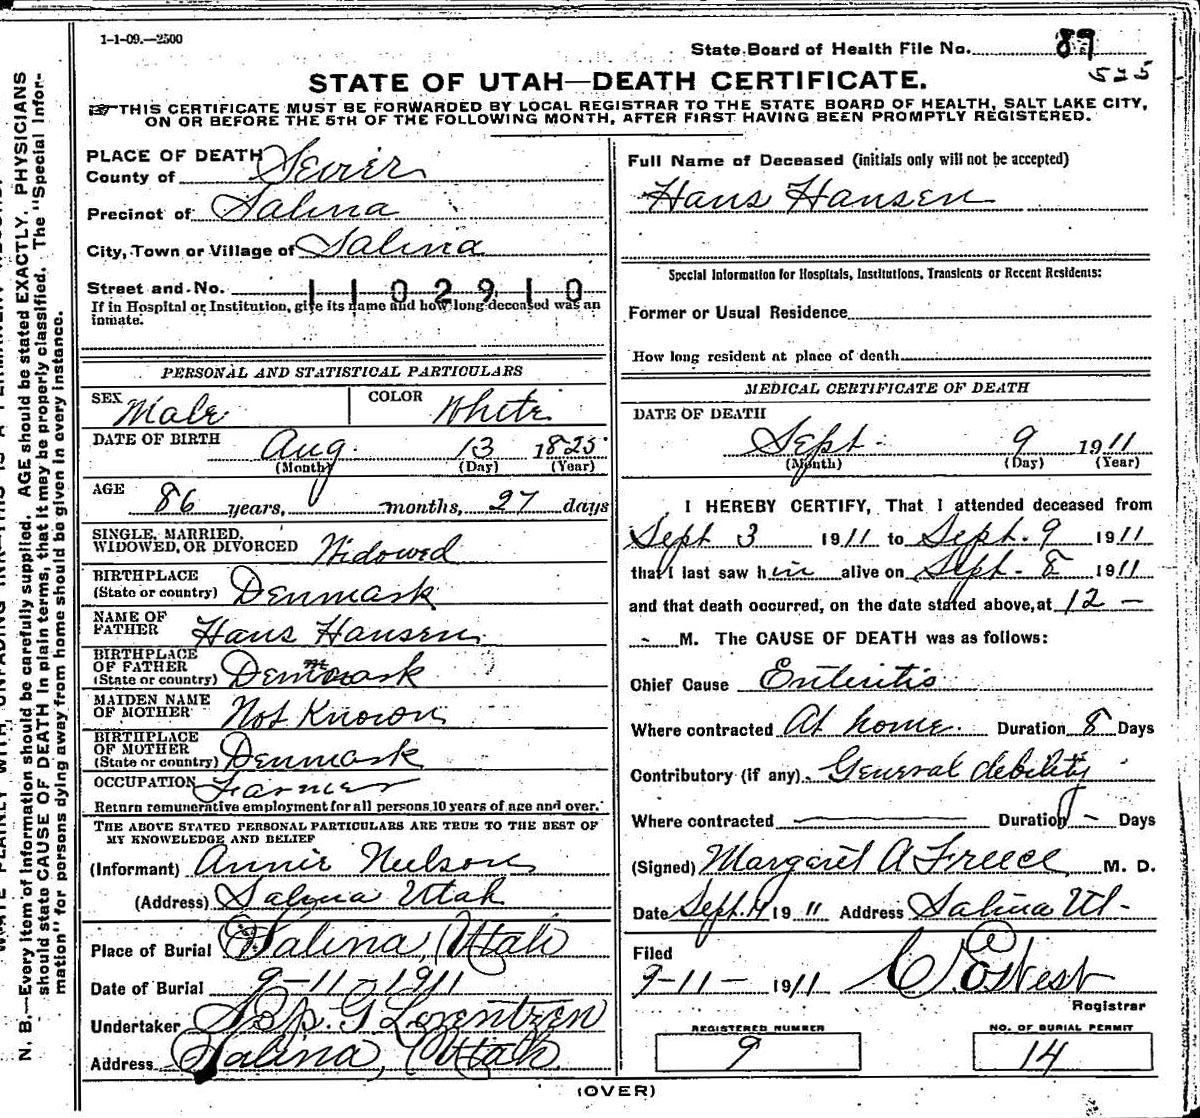 1-1-09.—2500
State Board of Health File No. 89
525
STATE OF UTAH—DEATH CERTIFICATE.
THIS CERTIFICATE MUST BE FORWARDED BY LOCAL REGISTRAR TO THE STATE BOARD OF HEALTH, SALT LAKE CITY,
ON OR BEFORE THE 5TH OF THE FOLLOWING MONTH, AFTER FIRST HAVING BEEN PROMPTLY REGISTERED.
PLACE OF DEATH
County of Sevier
Precinct of Salina
City, Town or Village of Salina
Street and No. 1102910
If in Hospital or Institution, give its name and how long deceased was an
inmate.
PERSONAL AND STATISTICAL PARTICULARS
SEX Male COLOR White
DATE OF BIRTH Aug. 13 1825
(Month) (Day) (Year)
AGE 86 years, months, 27 days
SINGLE, MARRIED,
WIDOWED, OR DIVORCED Widowed
BIRTHPLACE
(State or country) Denmark
NAME OF
FATHER Hans Hansen
BIRTHPLACE
OF FATHER
(State or country) Denmark
MAIDEN NAME
OF MOTHER Not Known
BIRTHPLACE
OF MOTHER
(State or country) Denmark
OCCUPATION Farmer
Return remunerative employment for all persons 10 years of age and over.
THE ABOVE STATED PERSONAL PARTICULARS ARE TRUE TO THE BEST OF
MY KNOWELEDGE AND BELIEF
(Informant) Annie Neilson
(Address) Salina Utah
Place of Burial Salina, Utah
Date of Burial 9-11-1911
Undertaker G Lorentzen
Address Salina, Utah
Full Name of Deceased (initials only will not be accepted)
Hans Hansen
Special Information for Hospitals, Institutions, Transients or Recent Residents:
Former or Usual Residence
How long resident at place of death
MEDICAL CERTIFICATE OF DEATH
DATE OF DEATH
Sept. 9 1911
(Month) (Day) (Year)
I HEREBY CERTIFY, That I attended deceased from
Sept 3 1911 to Sept. 9 1911
that I last saw him alive on Sept. 8 1911
and that death occurred, on the date stated above, at 12 —
- M. The CAUSE OF DEATH was as follows:
Chief Cause Enteritis
Where contracted At home. Duration 8 Days
Contributory (if any) General debility
Where contracted — Duration - Days
(Signed) Margaret A Freece M. D.
Date Sept. 11 1911 Address Salina Ut-
Filed
9-11- 1911 C. E. West
Registrar
REGISTERED NUMBER
9
NO. OF BURIAL PERMIT
14
(OVER)
N. B.—Every item of information should be carefully supplied. AGE should be stated EXACTLY. PHYSICIANS
should state CAUSE OF DEATH in plain terms, that it may be properly classified. The "Special Infor-
mation" for persons dying away from home should be given in every instance.